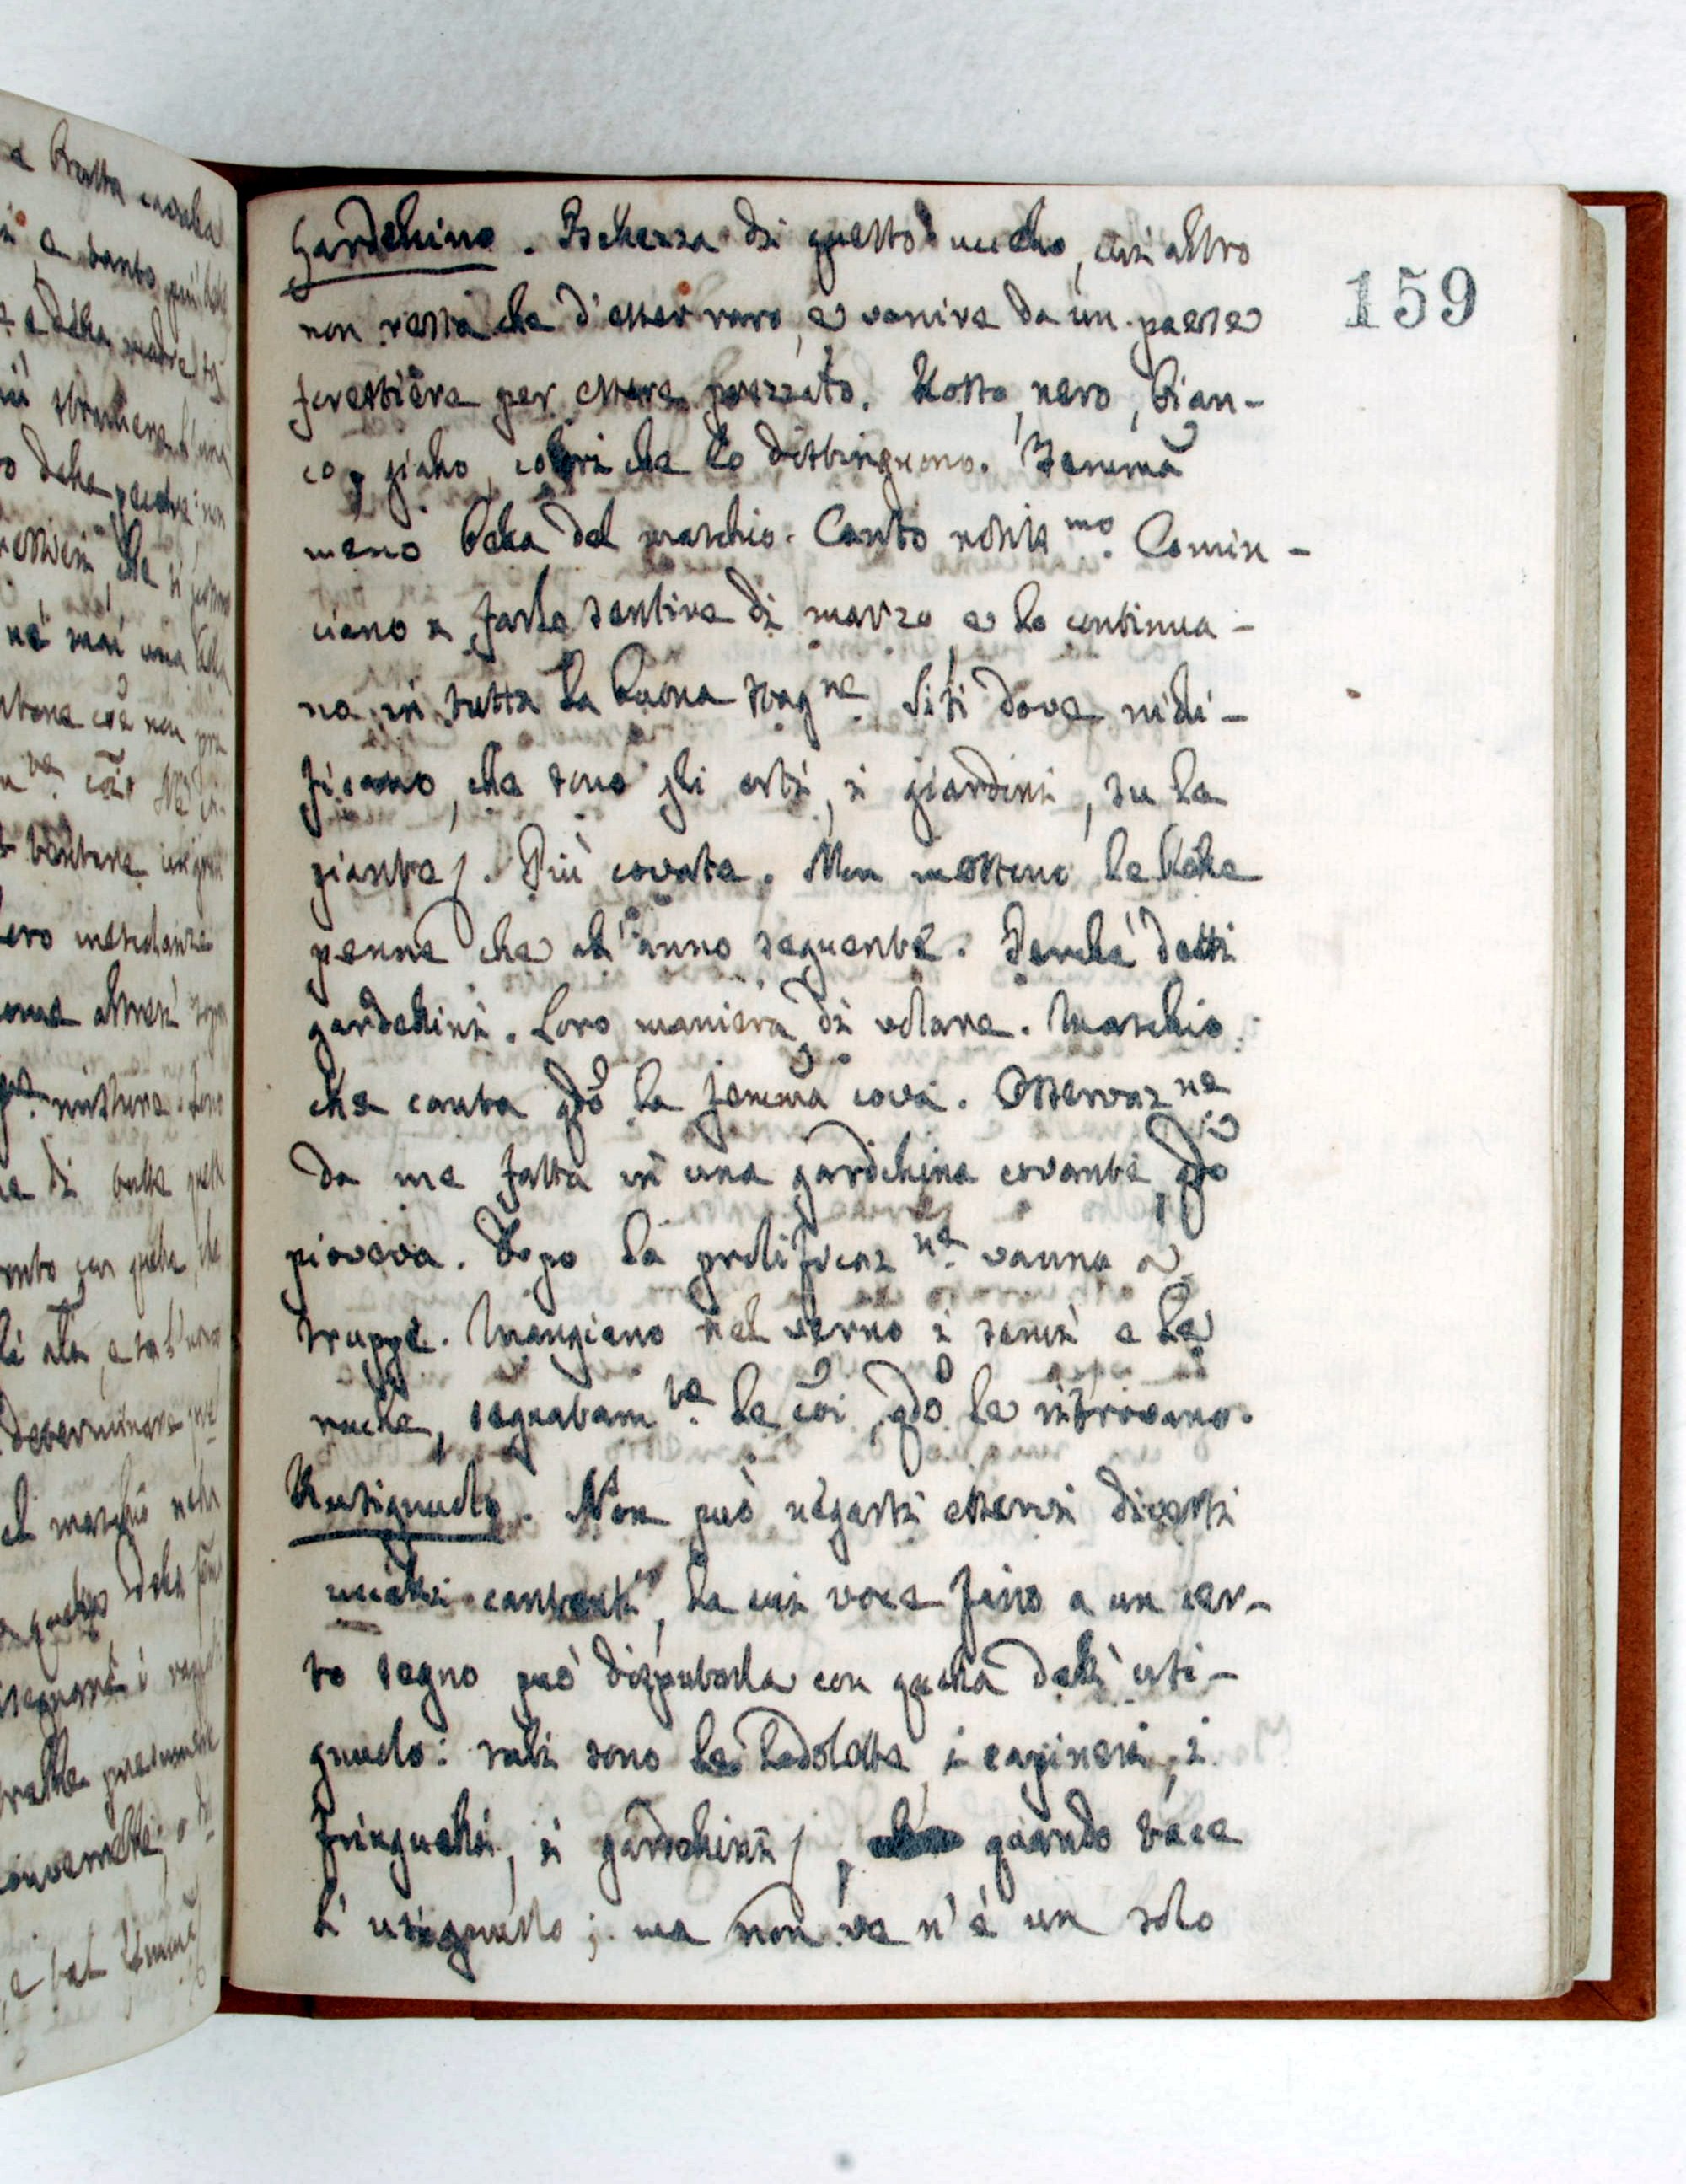 159
Gardelino. Bellezza di questo uccello, cui altro
non resta che d'esser raro, e venire da un paese
forestiere per essere prezzato. Rosso, nero, bian-
co, giallo, colori che lo distinguono. Femmã
meno bella del maschio. Canto nobil.mo Comin-
ciano a farlo sentire di marzo e lo continua-
no in tutta la buona stag.ne Siti dove nidi-
ficano, che sono gli orti, i giardini, su le
piante). Più covate. Non mettono le belle
penne che all'anno seguente. Perché detti
gardelini. Loro maniera di volare. Maschio
che canta qdo la femmã cova. Osservaz.ne
da me fatta in una gardelina covante, qdo
pioveva. Dopo la prolificaz.ne vanno a
truppe. Mangiano nel verno i semi e le
ruche, segnatam.te le coi, qdo le ritrovano.
Rusignuolo. Non può negarsi esservi diversi
uccelli cantanti, la cui voce fino a un cer-
to segno può disputarla con quella dell'usi-
gnuolo: tali sono le lodolette, i capineri, i
fringuelli, i gardelini), quando tace
l'usignuolo; ma non ve n'è un solo